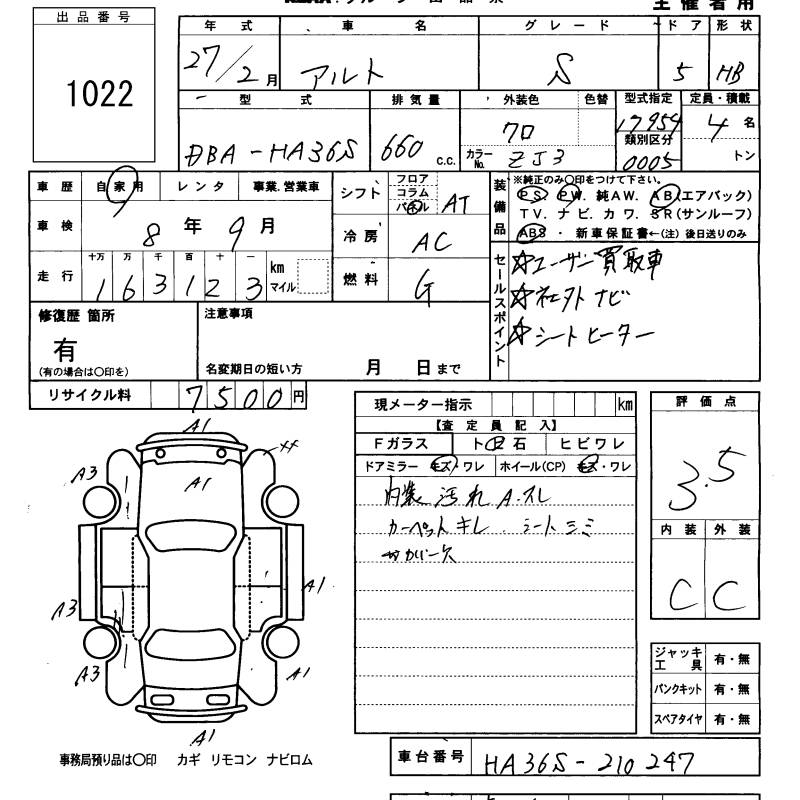 主催者用
出品番号
1022
年式 車名 グレード ドア 形状
27/2月 アルト S 5 HB
型式 排気量 外装色 色替 型式指定 定員・積載
DBA-HA36S 660 c.c. クロ 17954 4名
カラーNo. ZJ3 類別区分 0005 トン
車歴 自家用 レンタ 事業.営業車
車検 8年9月
走行 十万 万 千 百 十 一
163123 km マイル
シフト フロア コラム パネル AT
冷房 AC
燃料 G
装備品 ※純正のみ〇印をつけて下さい.
PS. PW. 純AW. AB(エアバック)
TV. ナビ. カワ. SR(サンルーフ)
ABS ・ 新車保証書←(注) 後日送りのみ
セールスポイント
☆ユーザー買取車
☆社外ナビ
☆シートヒーター
修復歴 箇所
有
(有の場合は〇印を)
注意事項
名変期日の短い方 月 日まで
リサイクル料 7500円
現メーター指示 km
【査定員記入】
Fガラス ト日石 ヒビワレ
ドアミラー キズ・ワレ ホイール(CP) キズ・ワレ
内装 汚れ A.スレ
カーペットキレ. シートシミ
カバー欠
評価点
3.5
内装 外装
C C
A1
××
A3
A1
A1
A3
A3
A1
A1
ジャッキ工具 有・無
パンクキット 有・無
スペアタイヤ 有・無
事務局預り品は〇印 カギ リモコン ナビロム
車台番号 HA36S-210247